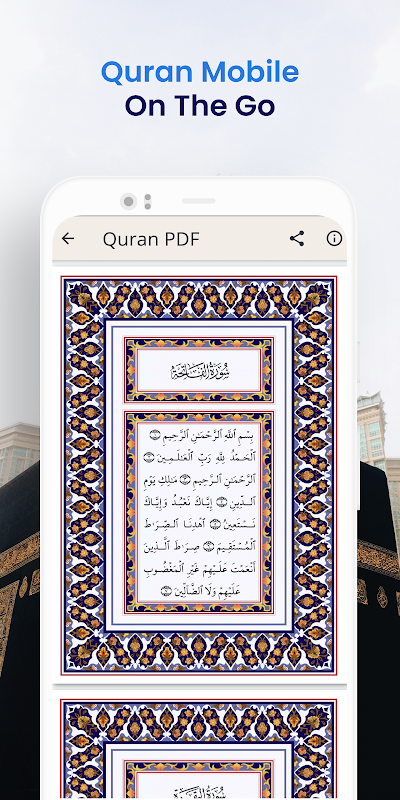 Quran Mobile
On The Go
Quran PDF
سُورَةُ الفَاتِحَة
بِسْمِ اللَّهِ الرَّحْمَٰنِ الرَّحِيمِ ۝
الْحَمْدُ لِلَّهِ رَبِّ الْعَالَمِينَ ۝
الرَّحْمَٰنِ الرَّحِيمِ ۝ مَالِكِ يَوْمِ
الدِّينِ ۝ إِيَّاكَ نَعْبُدُ وَإِيَّاكَ
نَسْتَعِينُ ۝ اهْدِنَا الصِّرَاطَ
الْمُسْتَقِيمَ ۝ صِرَاطَ الَّذِينَ
أَنْعَمْتَ عَلَيْهِمْ غَيْرِ الْمَغْضُوبِ
عَلَيْهِمْ وَلَا الضَّالِّينَ ۝
سُورَةُ البَقَرَة